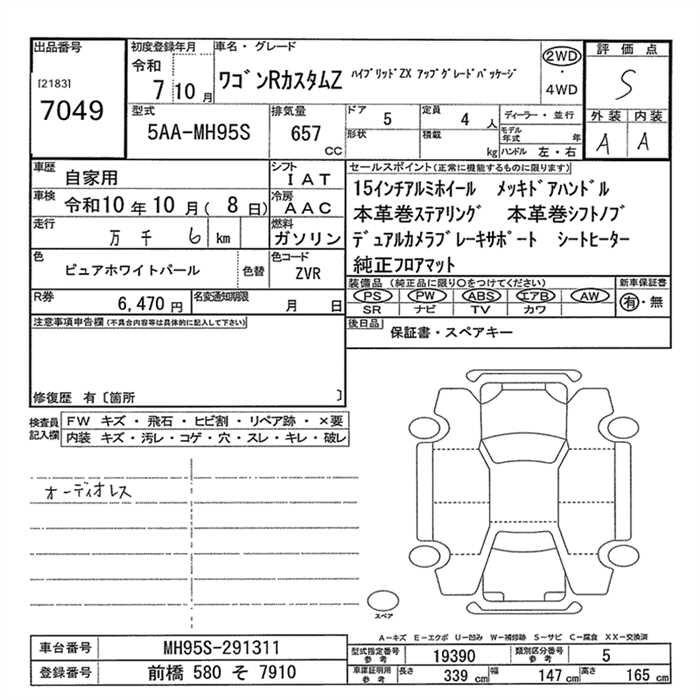 出品番号
[2183]
7049
初度登録年月
令和
7 10 月
車名・グレード
ワゴンRカスタムZ ハイブリッドZX アップグレードパッケージ
2WD
・
4WD
評価点
S
外装 内装
A A
型式
5AA-MH95S
排気量
657
cc
ドア 5
形状
定員 4 人
積載 kg
ディーラー・並行
モデル年式 年
ハンドル 左・右
車歴 自家用
車検 令和10年10月( 8日)
走行 万 千 6 km
シフト IAT
冷房 AAC
燃料 ガソリン
色 ピュアホワイトパール 色替
色コード ZVR
R券 6,470 円
名変通知期限 月 日
セールスポイント(正常に機能するものに限ります)
15インチアルミホイール メッキドアハンドル
本革巻ステアリング 本革巻シフトノブ
デュアルカメラブレーキサポート シートヒーター
純正フロアマット
装備品 (純正品に限り○をつけてください)
PS PW ABS エアB AW
SR ナビ TV カワ
新車保証書
有・無
後日品 保証書・スペアキー
注意事項申告欄(不具合内容等は具体的に記入して下さい)
修復歴 有〔箇所 〕
検査員記入欄
FW キズ・飛石・ヒビ割・リペア跡・×要
内装 キズ・汚レ・コゲ・穴・スレ・キレ・破レ
オーディオレス
スペア
A-キズ E-エクボ U-凹み W-補修跡 S-サビ C-腐食 XX-交換済
車台番号 MH95S-291311
登録番号 前橋 580 そ 7910
型式指定番号参考 19390
類別区分番号参考 5
車庫証明用参考 長さ 339 cm 幅 147 cm 高さ 165 cm